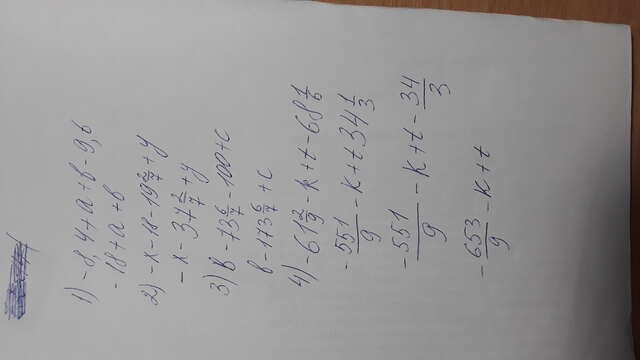 1) -8,4+a+b-9,6
-18+a+b
2) -x-18-19 2/7+y
-x-37 2/7+y
3) b-73 6/7-100+c
b-173 6/7+c
4) -61 2/9-k+t-68 1/6
-551/9-k+t 34 1/3
-551/9-k+t-34/3
-653/9-k+t